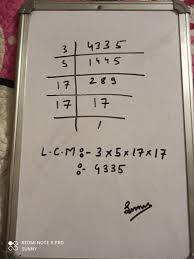 3 | 4335
5 | 1445
17 | 289
17 | 17
1
L.C.M :- 3×5×17×17
:- 4335
REDMI NOTE 9 PRO
SUNNY